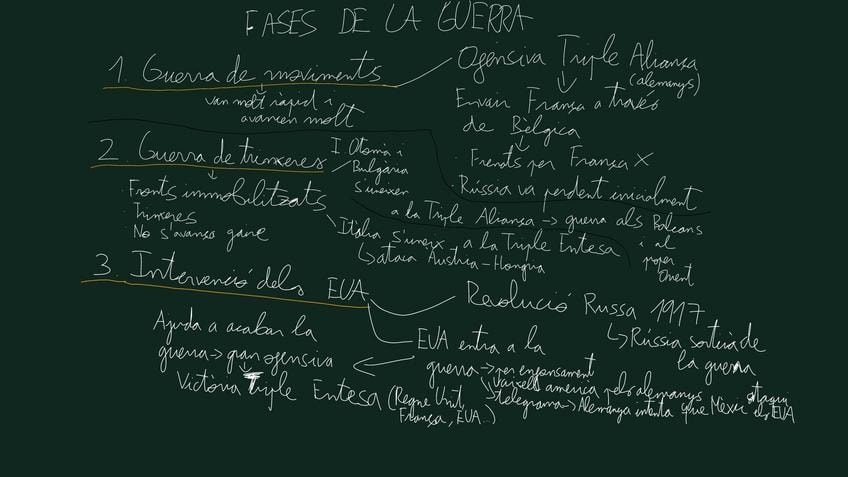 FASES DE LA GUERRA
1. Guerra de moviments
van molt ràpid i
avancen molt
Ofensiva Triple Aliança
(alemanys)
Envair França a través
de Bèlgica
· Frenats per França X
· Rússia va perdent inicialment
2. Guerra de trinxeres
· Fronts immobilitzats
· Trinxeres
· No s'avança gaire
I. Otomà i
Bulgària
s'uneixen
a la Triple Aliança → guerra als Balcans
i al
proper
Orient
Itàlia s'uneix a la Triple Entesa
↳ ataca Àustria-Hongria
3. Intervenció dels EUA
Revolució Russa 1917
↳ Rússia sortirà de
la guerra
EUA entra a la
guerra → per enfonsament
vaixell america pels alemanys
→ telegrama → Alemanya intenta que Mèxic ataqui
els EUA
Ajuda a acabar la
guerra → gran ofensiva
Victòria Triple Entesa (Regne Unit,
França, EUA...)